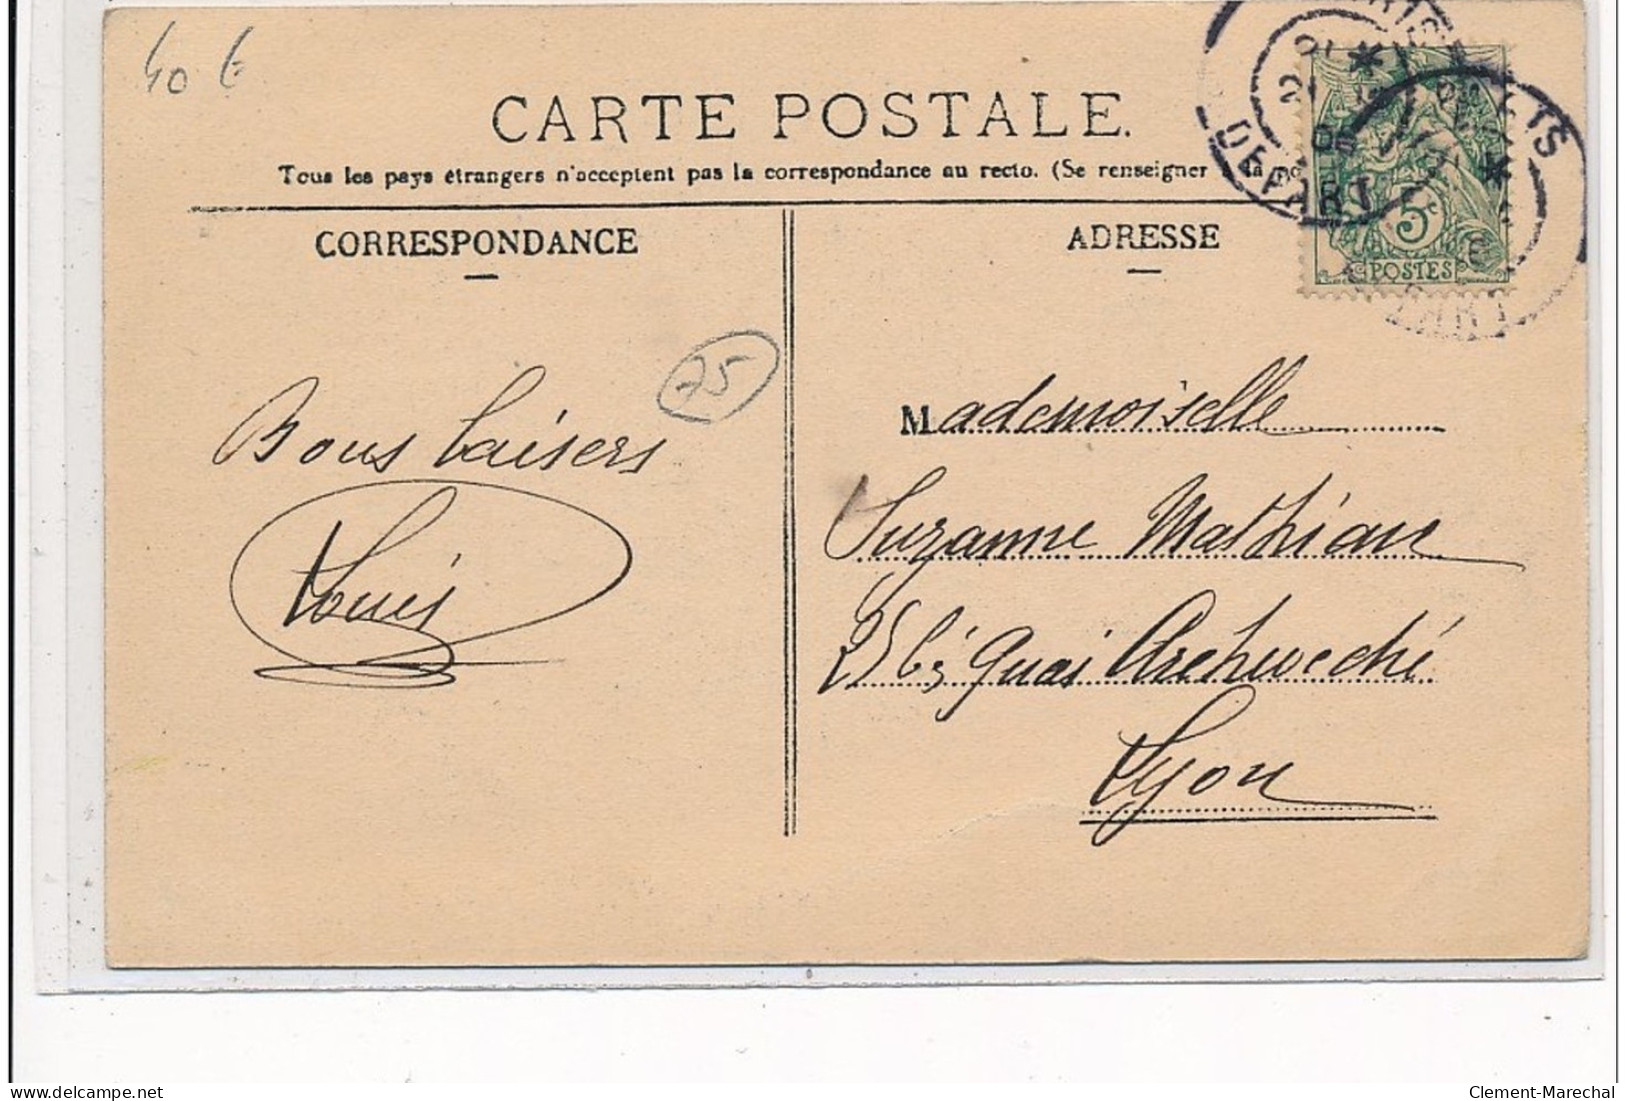 40 €
CARTE POSTALE.
Tous les pays étrangers n'acceptent pas la correspondance au recto. (Se renseigner
CORRESPONDANCE
ADRESSE
DÉPART
5c
POSTES
75
Bons baisers
Louis
Mademoiselle
Suzanne Mathian
25 bis Quai Archeveché
Lyon
Clement-Marechal